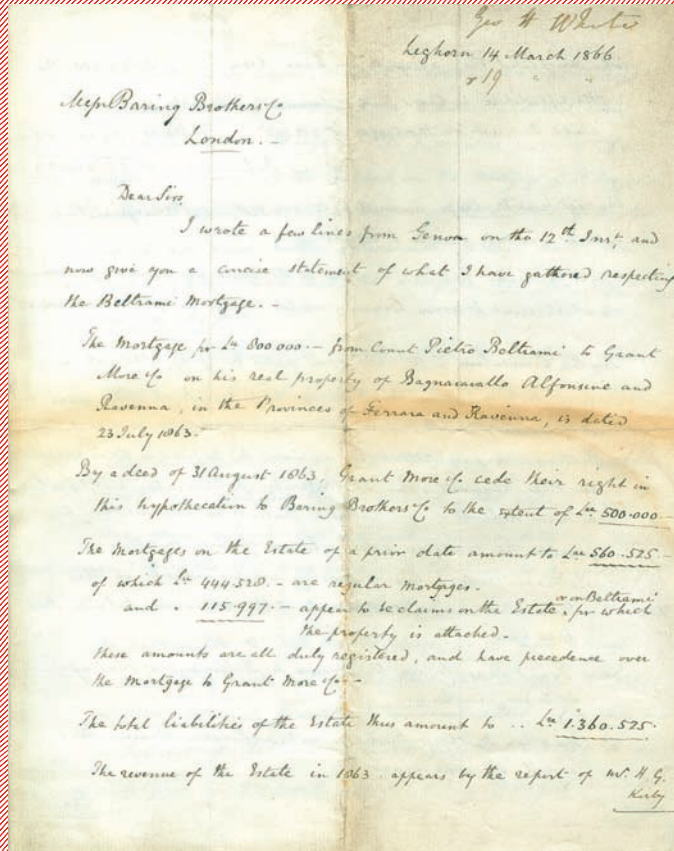 Geo H White
Leghorn 14 March 1866
r 19 " "
Messrs Baring Brothers & Co
London. -
Dear Sirs
I wrote a few lines from Genoa on the 12th Inst, and
now give you a concise statement of what I have gathered respecting
the Beltrami Mortgage. -
The Mortgage for Lre 800.000. - from Count Pietro Beltrami to Grant
More & Co on his real property of Bagnacavallo Alfonsine and
Ravenna, in the Provinces of Ferrara and Ravenna, is dated
23 July 1863. -
By a deed of 31 August 1863, Grant More & Co cede their right in
this hypothecation to Baring Brothers & Co to the extent of Lre 500.000 -
The Mortgages on the Estate of a prior date amount to Lre 560.525 -
of which Lre 444.528. - are regular mortgages.
and " 115.997. - appear to be claims on the Estate, or on Beltrami for which
the property is attached. -
these amounts are all duly registered, and have precedence over
the mortgage to Grant More & Co. -
The total liabilities of the Estate thus amount to .. Lre 1.360.525.
The revenue of the Estate in 1863. appears by the report of Mr. H. G.
Kirby